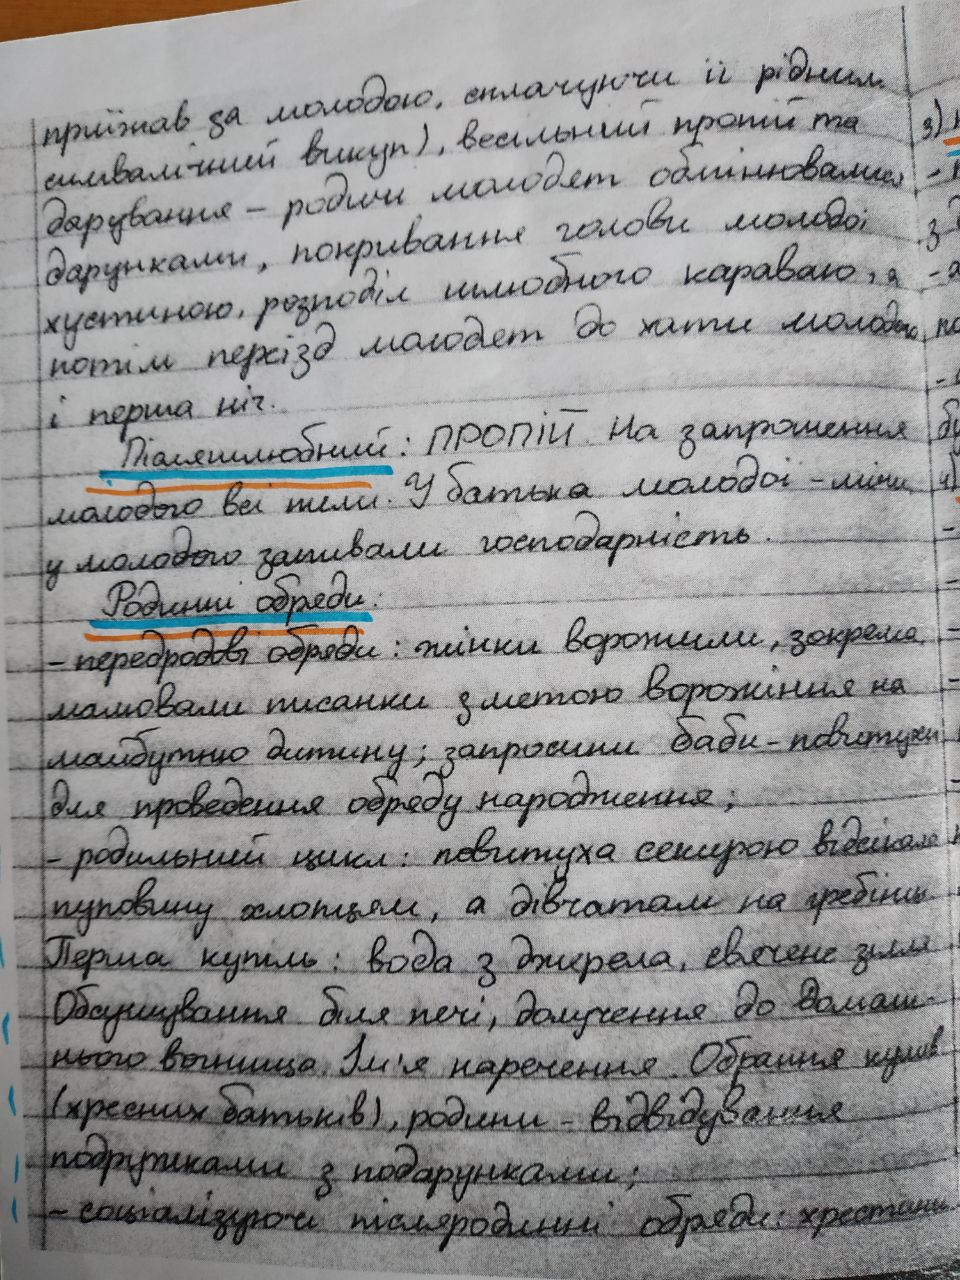 приїжав за молодою, сплачуючи її рідним
символічний викуп), весільний пропій та
дарування – родичи молодят обмінювалися
дарунками, покривання голови молодої
хустиною, розподіл шлюбного караваю, а
потім переїзд молодят до хати молодого
і перша ніч.
Післяшлюбний: ПРОПІЙ. На запрошення
молодого всі пили. У батька молодої –
у молодого запивали господарність.
Родинні обряди:
– передродові обряди: жінки ворожили, зокрема
малювали писанки з метою ворожіння на
майбутню дитину; запросини баби-повитухи
для проведення обряду народження;
– родильний цикл: повитуха сокирою відсікала
пуповину хлопцям, а дівчатам на гребінці
Перша купіль: вода з джерела, свячене зілля
Обсушування біля печі, долучення до домаш-
нього вогнища. Ім'я наречення. Обрання кумів
(хресних батьків), родини – відвідування
подружками з подарунками;
– соціалізуючі післяродинні обряди: хрестини
з)
-
з
-а
по
-
бу
-
-